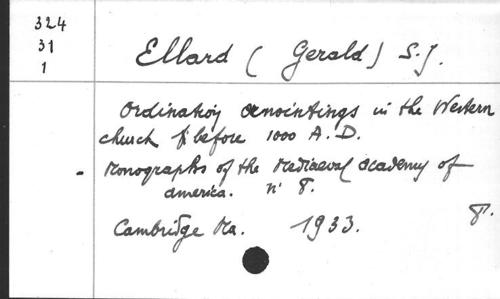 324
31
1
Ellard (Gerald) S.J.
Ordination anointings in the Western
church before 1000 A.D.
- Monographs of the Mediaeval Academy of
America. n° 8.
Cambridge Ma. 1933. 8°.